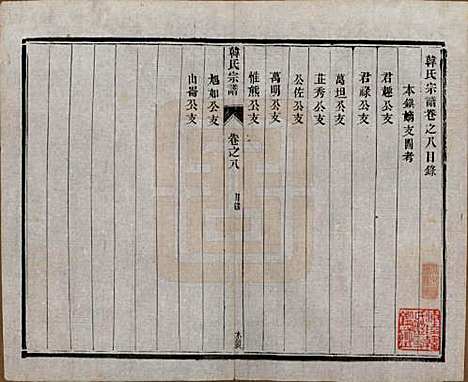 韓氏宗譜卷之八目錄
本鎮嫡支圖考
君趣公支
君祿公支
萬坦公支
芷秀公支
公佐公支
萬明公支
惟熊公支
韓氏宗譜
卷之八
目錄
旭如公支
山崙公支